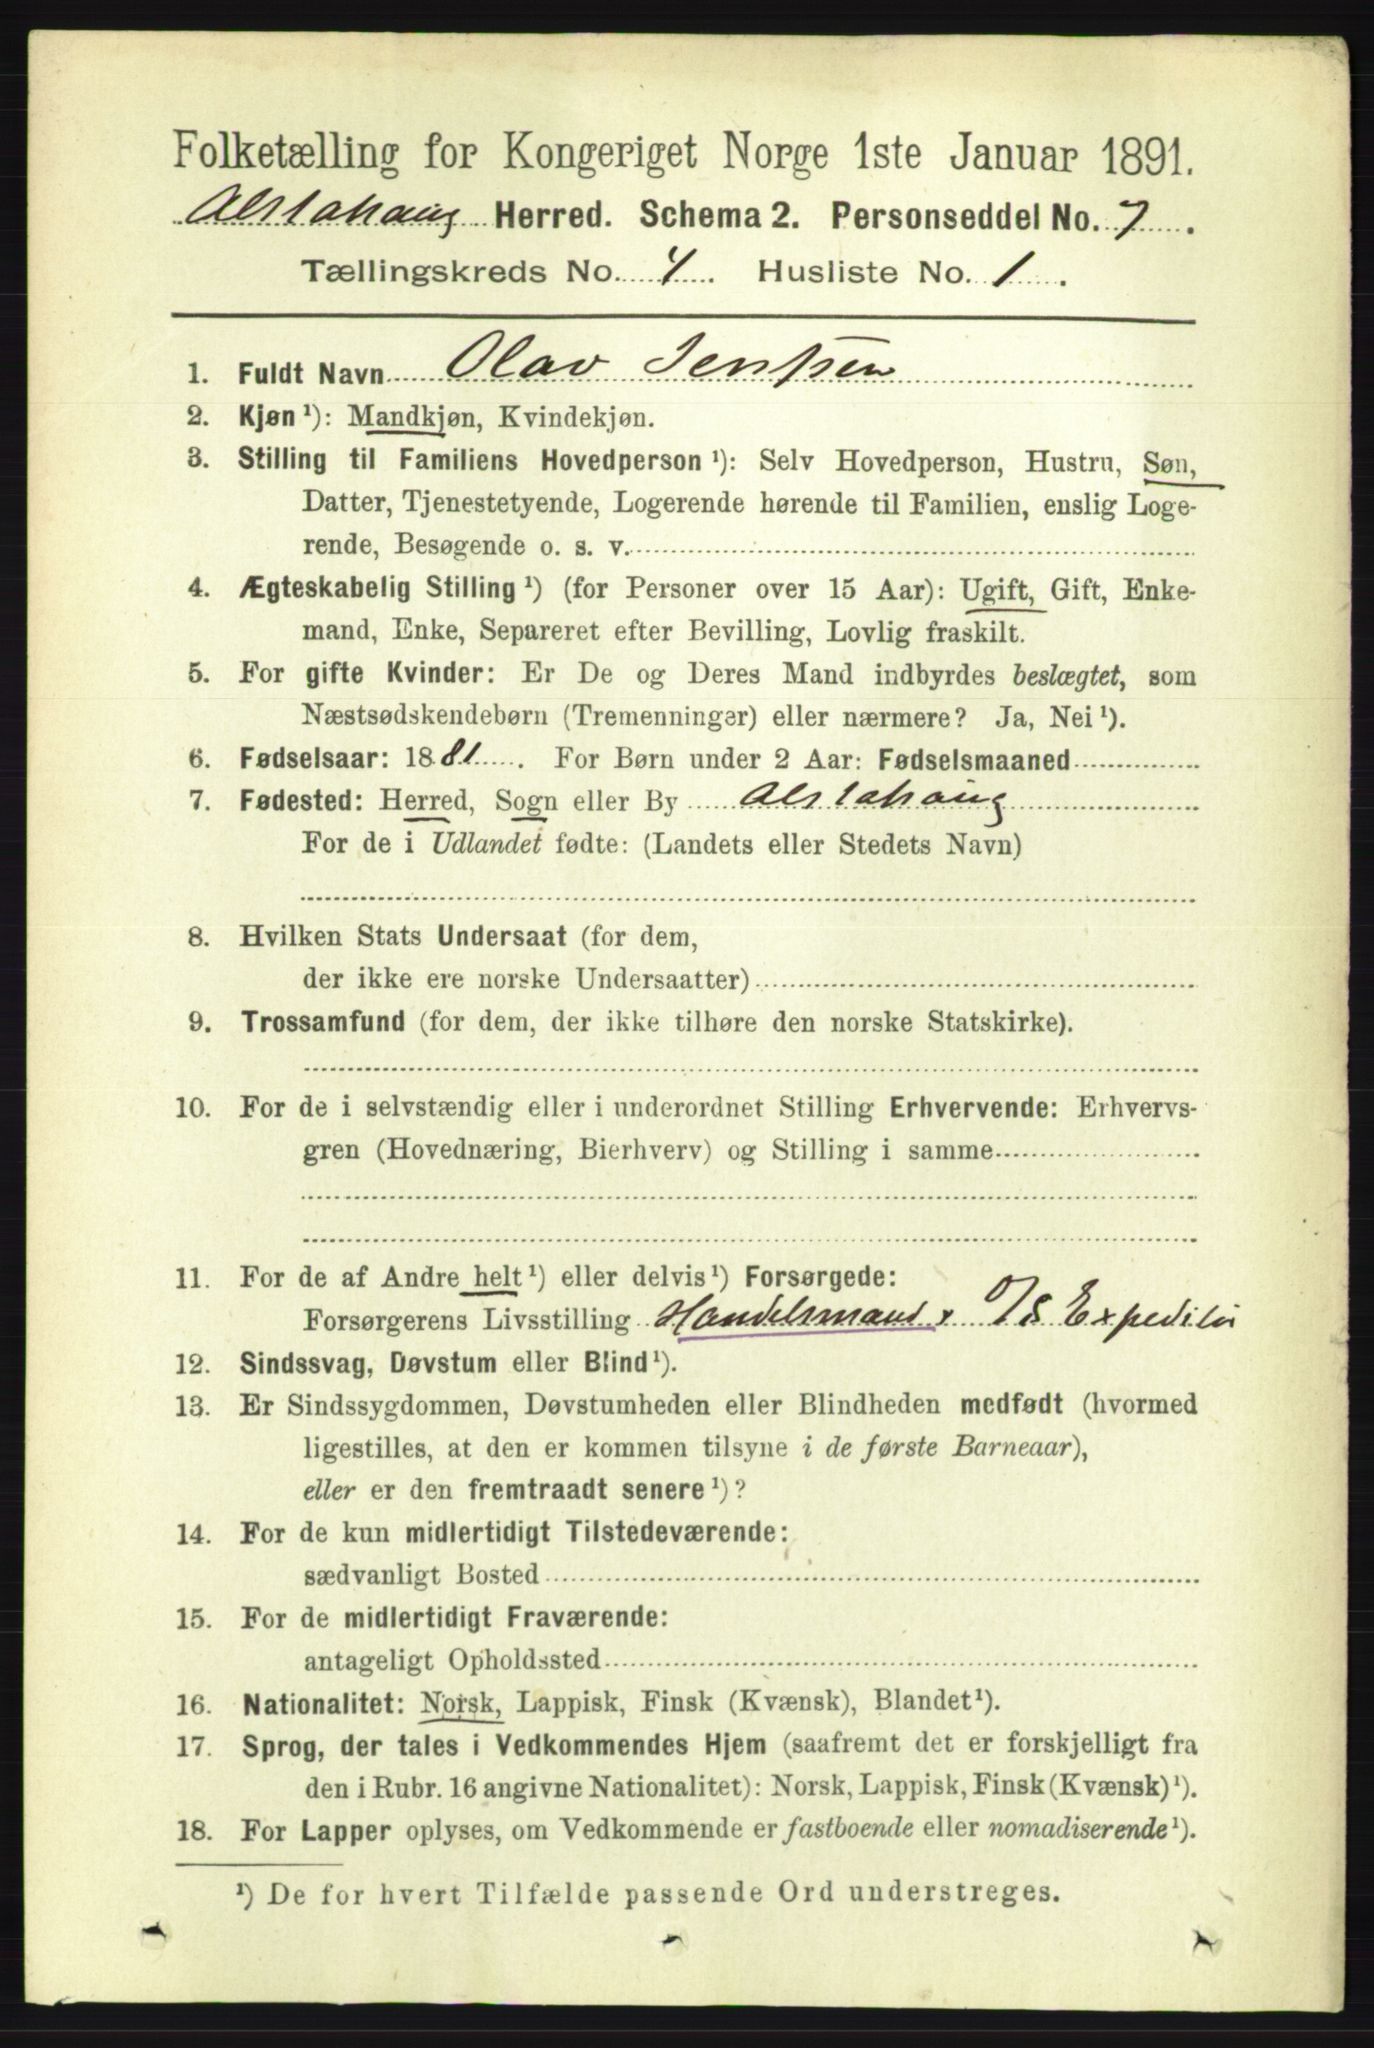 Folketælling for Kongeriget Norge 1ste Januar 1891.
Alstahaug Herred. Schema 2. Personseddel No. 7.
Tællingskreds No. 4. Husliste No. 1.
1. Fuldt Navn Olav Jentsen
2. Kjøn ¹): Mandkjøn, Kvindekjøn.
3. Stilling til Familiens Hovedperson ¹): Selv Hovedperson, Hustru, Søn,
Datter, Tjenestetyende, Logerende hørende til Familien, enslig Loge-
rende, Besøgende o. s. v.
4. Ægteskabelig Stilling ¹) (for Personer over 15 Aar): Ugift, Gift, Enke-
mand, Enke, Separeret efter Bevilling, Lovlig fraskilt.
5. For gifte Kvinder: Er De og Deres Mand indbyrdes beslægtet, som
Næstsødskendebørn (Tremenninger) eller nærmere? Ja, Nei ¹).
6. Fødselsaar: 1881. For Børn under 2 Aar: Fødselsmaaned
7. Fødested: Herred, Sogn eller By Alstahaug
For de i Udlandet fødte: (Landets eller Stedets Navn)
8. Hvilken Stats Undersaat (for dem,
der ikke ere norske Undersaatter)
9. Trossamfund (for dem, der ikke tilhøre den norske Statskirke).
10. For de i selvstændig eller i underordnet Stilling Erhvervende: Erhvervs-
gren (Hovednæring, Bierhverv) og Stilling i samme
11. For de af Andre helt ¹) eller delvis ¹) Forsørgede:
Forsørgerens Livsstilling Handelsmand x D/S Expeditør
12. Sindssvag, Døvstum eller Blind ¹).
13. Er Sindssygdommen, Døvstumheden eller Blindheden medfødt (hvormed
ligestilles, at den er kommen tilsyne i de første Barneaar),
eller er den fremtraadt senere ¹)?
14. For de kun midlertidigt Tilstedeværende:
sædvanligt Bosted
15. For de midlertidigt Fraværende:
antageligt Opholdssted
16. Nationalitet: Norsk, Lappisk, Finsk (Kvænsk), Blandet ¹).
17. Sprog, der tales i Vedkommendes Hjem (saafremt det er forskjelligt fra
den i Rubr. 16 angivne Nationalitet): Norsk, Lappisk, Finsk (Kvænsk) ¹).
18. For Lapper oplyses, om Vedkommende er fastboende eller nomadiserende ¹).
¹) De for hvert Tilfælde passende Ord understreges.